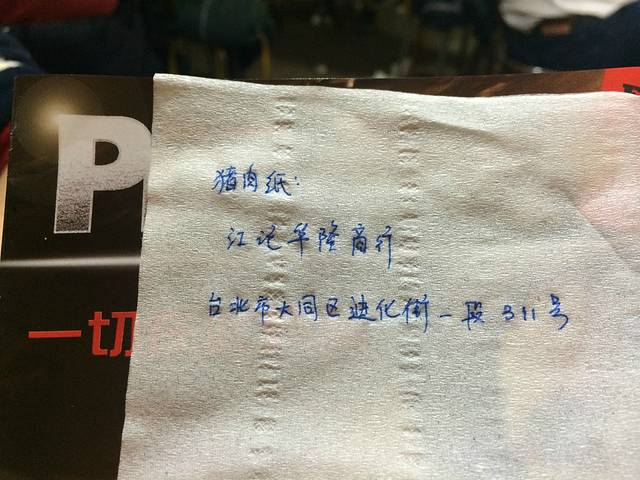 P
猪肉纸:
江记华隆商行
台北市大同区迪化街一段311号
一切